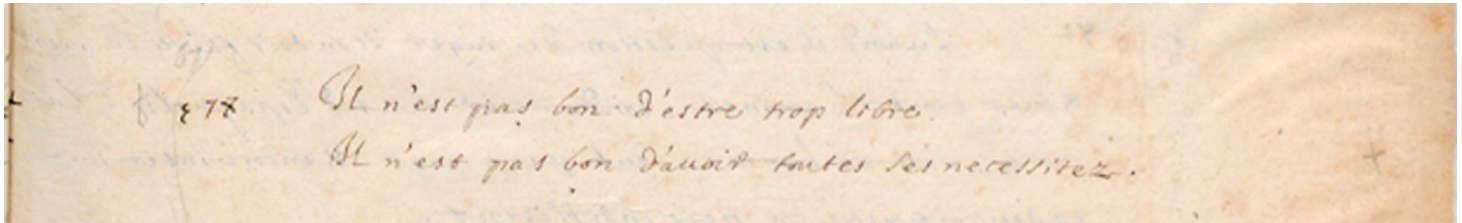 ξ 78 Il n'est pas bon d'estre trop libre.
Il n'est pas bon d'auoir toutes ses necessitez.